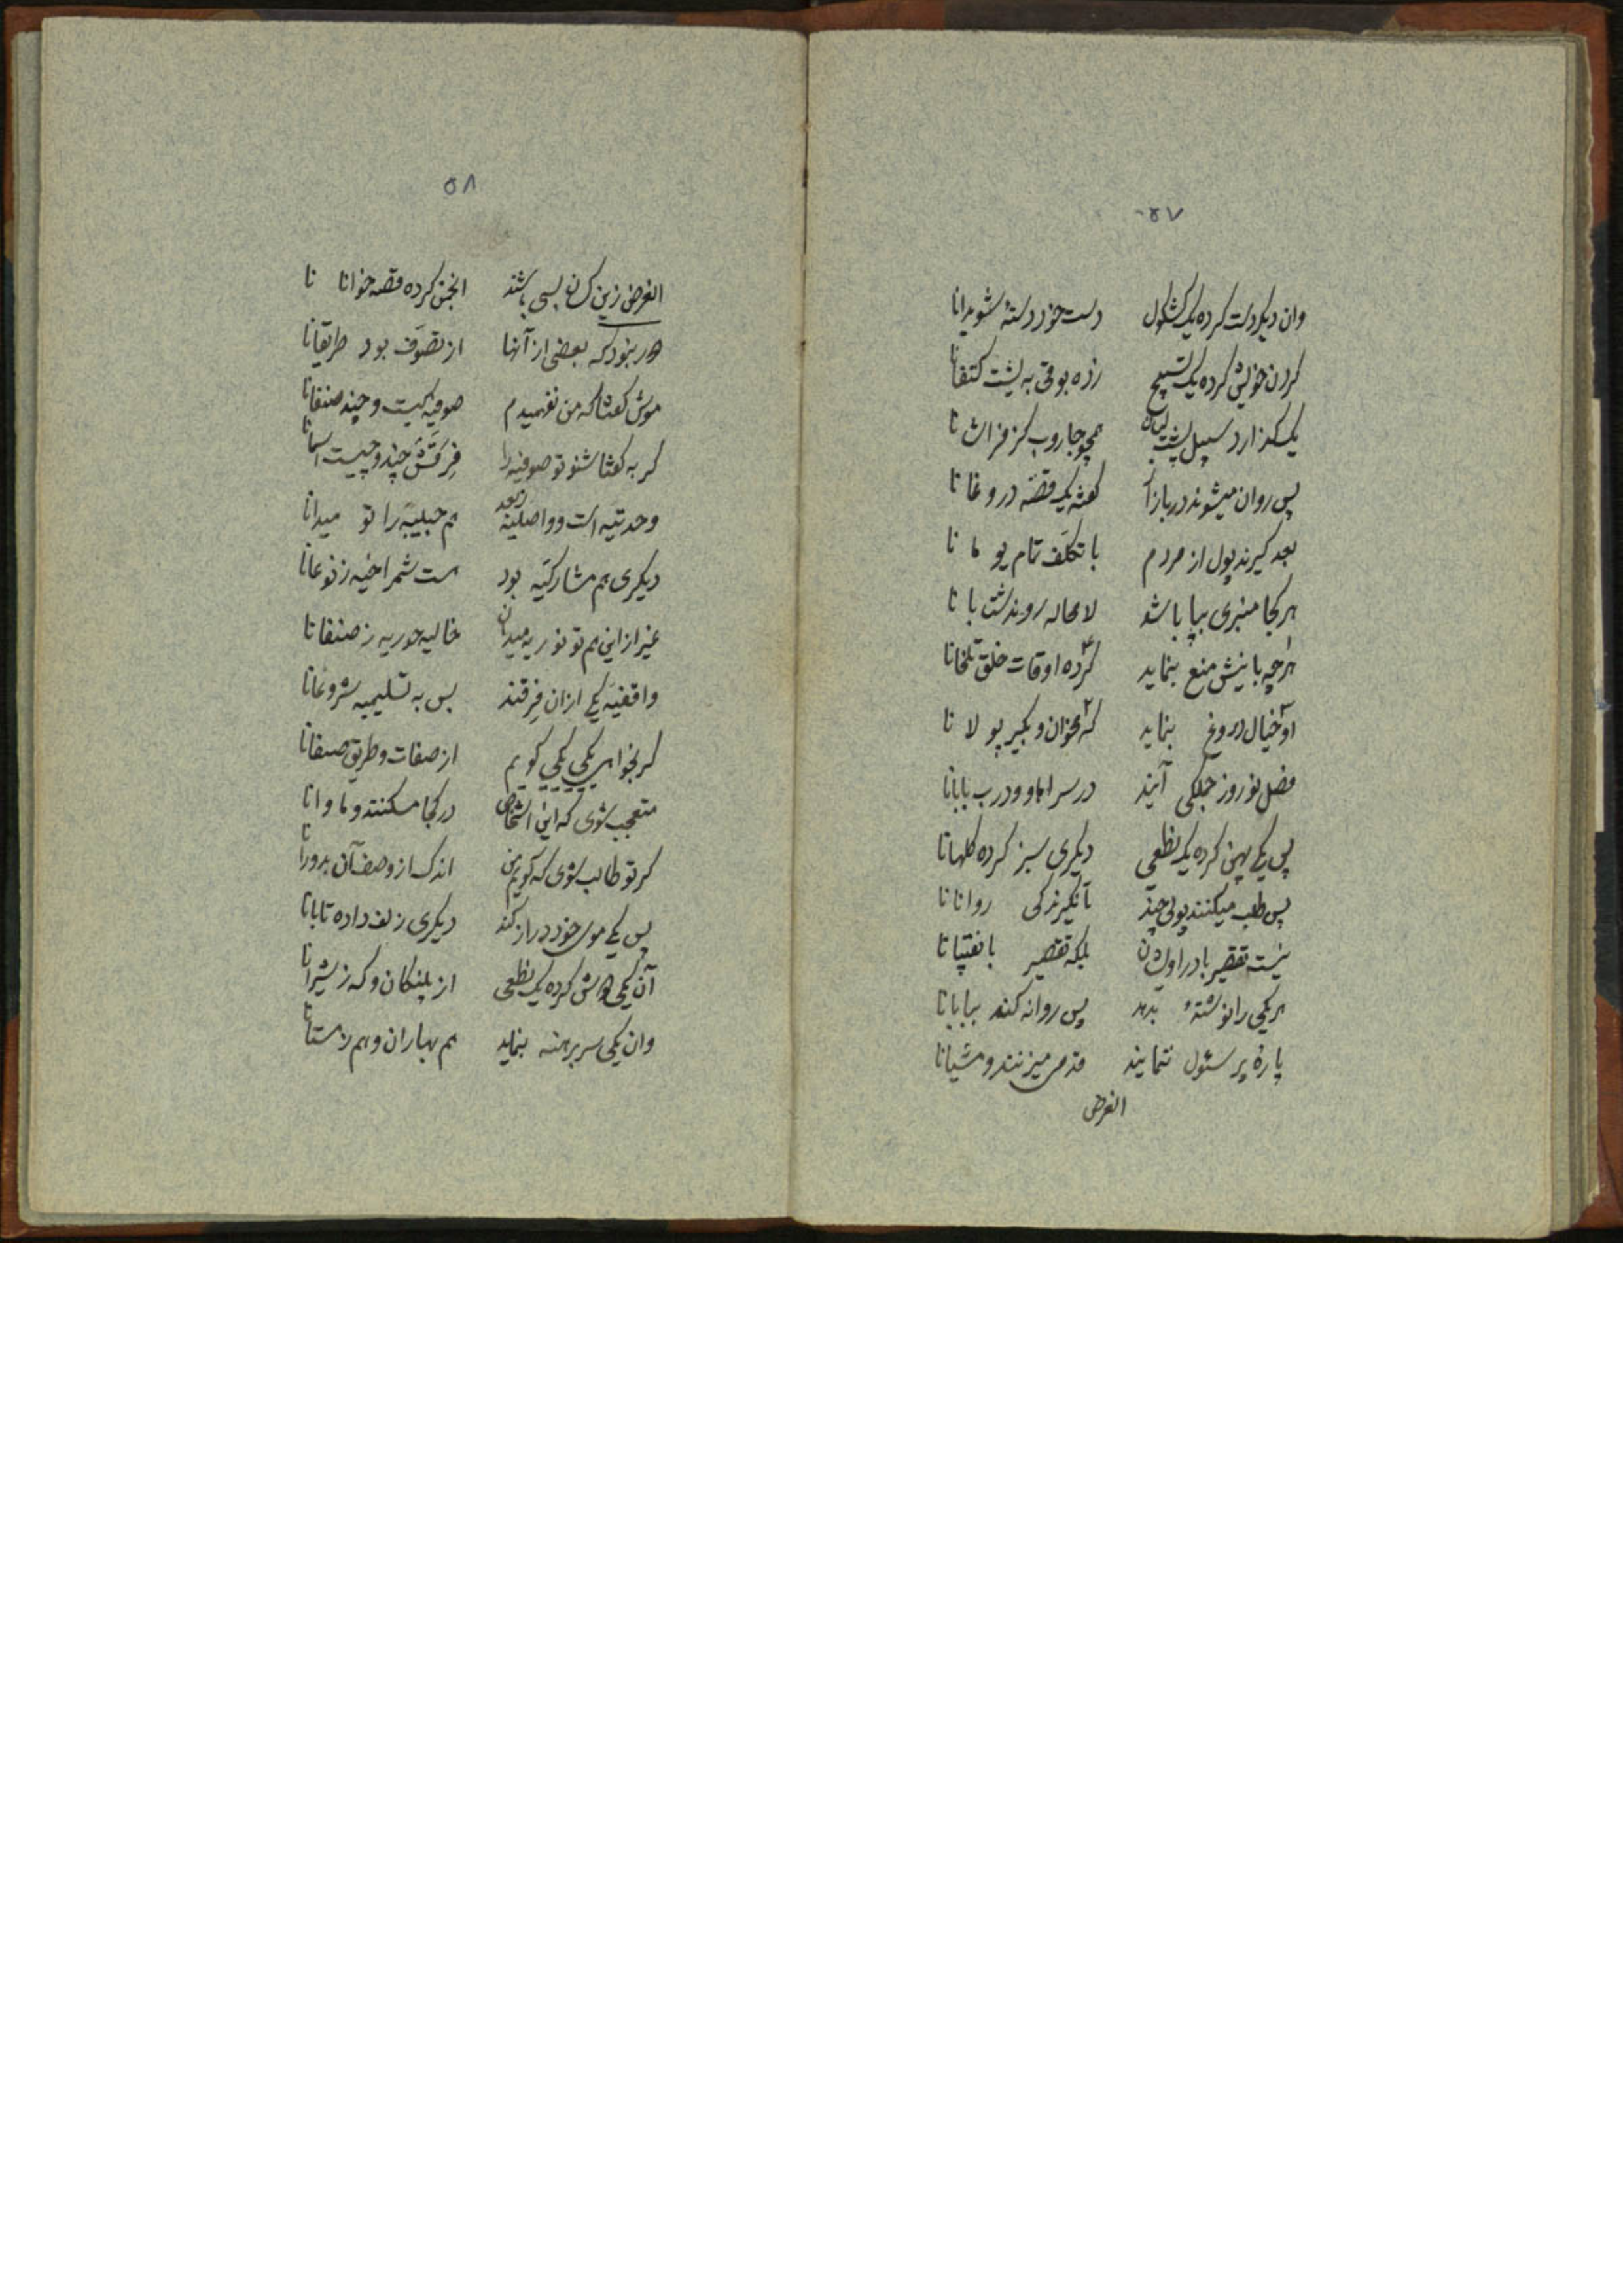 ۵۷
وان دیگر دست کرده یک کشکول دست خود دستهٔ شویدانا
گردن خویش کرده یک تسبیح زده بوقی به پشت کتفانا
یک گذارد سبیل پشت لبان همچو جاروب کز فراشانا
پس روان میشوند در بازار گفته یک قصّه دروغانا
بعد گیرند پول از مردم با تکلّف تمام یومانا
هر کجا منبری بپا باشد لامحاله روند شتابانا
هرچه بانیش منع بنماید کرده اوقات خلق تلخانا
او خیال دروغ بنماید که بخوان و بگیر پولانا
فصل نوروز جملگی آیند در سراها و درب بابانا
پس یکی پهن کرده یک نطعی دیگری سبز کرده گلهانا
پس طلب میکنند پولی چند تا نگیرند کی روانانا
نیست تقصیر با دراویشان بلکه تقصیر با نقیبانا
هر یکی را نوشتهٔ بدهد پس روانه کند ببابانا
پارهٔ پرسئول ننمایند قدمی میزنند و مشیانا
الغرض
۵۸
الغرض زین کسان بسی باشند انجمن کرده قصه خوانانا
ور بنود که بعضی از آنها از تصوّف بود طریقانا
موش گفتا که من نفهمیدم صوفیه کیست و چند صنفانا
گربه گفتا شنو تو صوفیه را فِرقَتش چند و چیست اسمانا
وحدتیه است و واصلیه بعد هم حبیبیّه را تو میدانا
دیگری هم مشارکیّه بود هست شمراخیه ز نوعانا
غیر از این هم تو نوریه میدان حالیه حوریه ز صنفانا
واقفیّه یکی از ان فِرقند پس به تسلیمیه شروعانا
گر بخواهی یکی یکی گویم از صفات و طریق صنفانا
متعجب شوی که این اشخاص در کجا مسکنند و ماوانا
گر تو طالب شوی که گویم من اندک از وصف آن بدورانا
پس یکی موی خود دراز کند دیگری زلف داده تابانا
آن یکی دوش کرده یک نطعی از پلنگان و که ز شیرانا
وان یکی سر برهنه بنماید هم بهاران و هم زمستانا